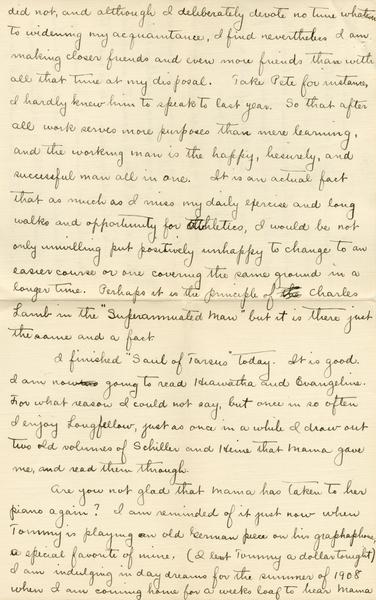 did not, and although I deliberately devote no time whatever
to widening my acquaintance, I find nevertheless I am
making closer friends and even more friends than with
all that time at my disposal. Take Pete for instance,
I hardly knew him to speak to last year. So that after
all work serves more purposes than mere learning,
and the working man is the happy, leisurely, and
successful man all in one. It is an actual fact
that as much as I miss my daily exercise and long
walks and opportunity for athletics, I would be not
only unwilling but positively unhappy to change to an
easier course or one covering the same ground in a
longer time. Perhaps it is the principle of Charles
Lamb in the "Superannuated Man" but it is there just
the same and a fact
I finished "Saul of Tarsus" today. It is good.
I am now going to read Hiawatha and Evangeline.
For what reason I could not say, but once in so often
I enjoy Longfellow, just as once in a while I draw out
two old volumes of Schiller and Heine that Mama gave
me, and read them through.
Are you not glad that Mama has taken to her
piano again? I am reminded of it just now when
Tommy is playing an old German piece on his graphaphone,
a special favorite of mine. (I lent Tommy a dollar tonight)
I am indulging in day dreams for the summer of 1908
when I am coming home for a weeks loaf to hear Mama